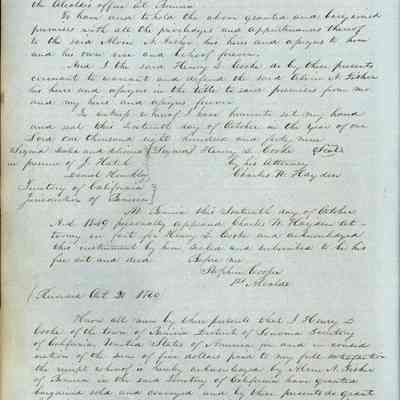 the Alcaldes office at Benicia
To have and to hold the above granted and bargained
premises with all the priviledges and appurtenances thereof
to the said Alvin A. Fisher his heirs and assigns to him
and his own use and behoof forever.
And I the said Henry D. Cooke do by these presents
covenant to warrant and defend the said Alvin A. Fisher
his heirs and assigns in the title to said premises from me
and my heirs and assigns forever
In witness whereof I have hereunto set my hand
and seal this day of October in the year of our
Lord one thousand eight hundred and forty nine
Signed Sealed and delivered (Signed) Henry D. Cooke (Seal)
in presence of J. Hatch by his Attorney
Daniel Charles W. Hayden
Territory of California
Jurisdiction of Benicia
At Benicia this day of October
A.D. 1849 personally appeared Charles W. Hayden At-
torney in fact for Henry D. Cooke and acknowledged
this instrument by him Sealed and to be his
free act and deed Before me
Stephen Cooper
1st Alcalde
(Received Oct 20 1849
Know all men by these presents that I Henry D
Cooke of the town of Benicia District of Sonoma Territory
of California United States of America for and in consid-
eration of the sum of five dollars paid to my full satisfaction
the receipt whereof is hereby acknowledged by Alvin A. Fisher
of Benicia in the said Territory of California have granted
bargained sold and conveyed and by these presents do grant